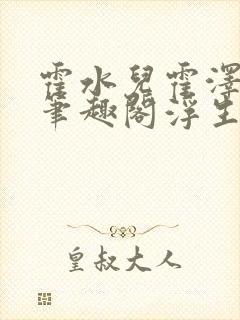 霍水兒霍澤
筆趣閣浮生
皇叔大人